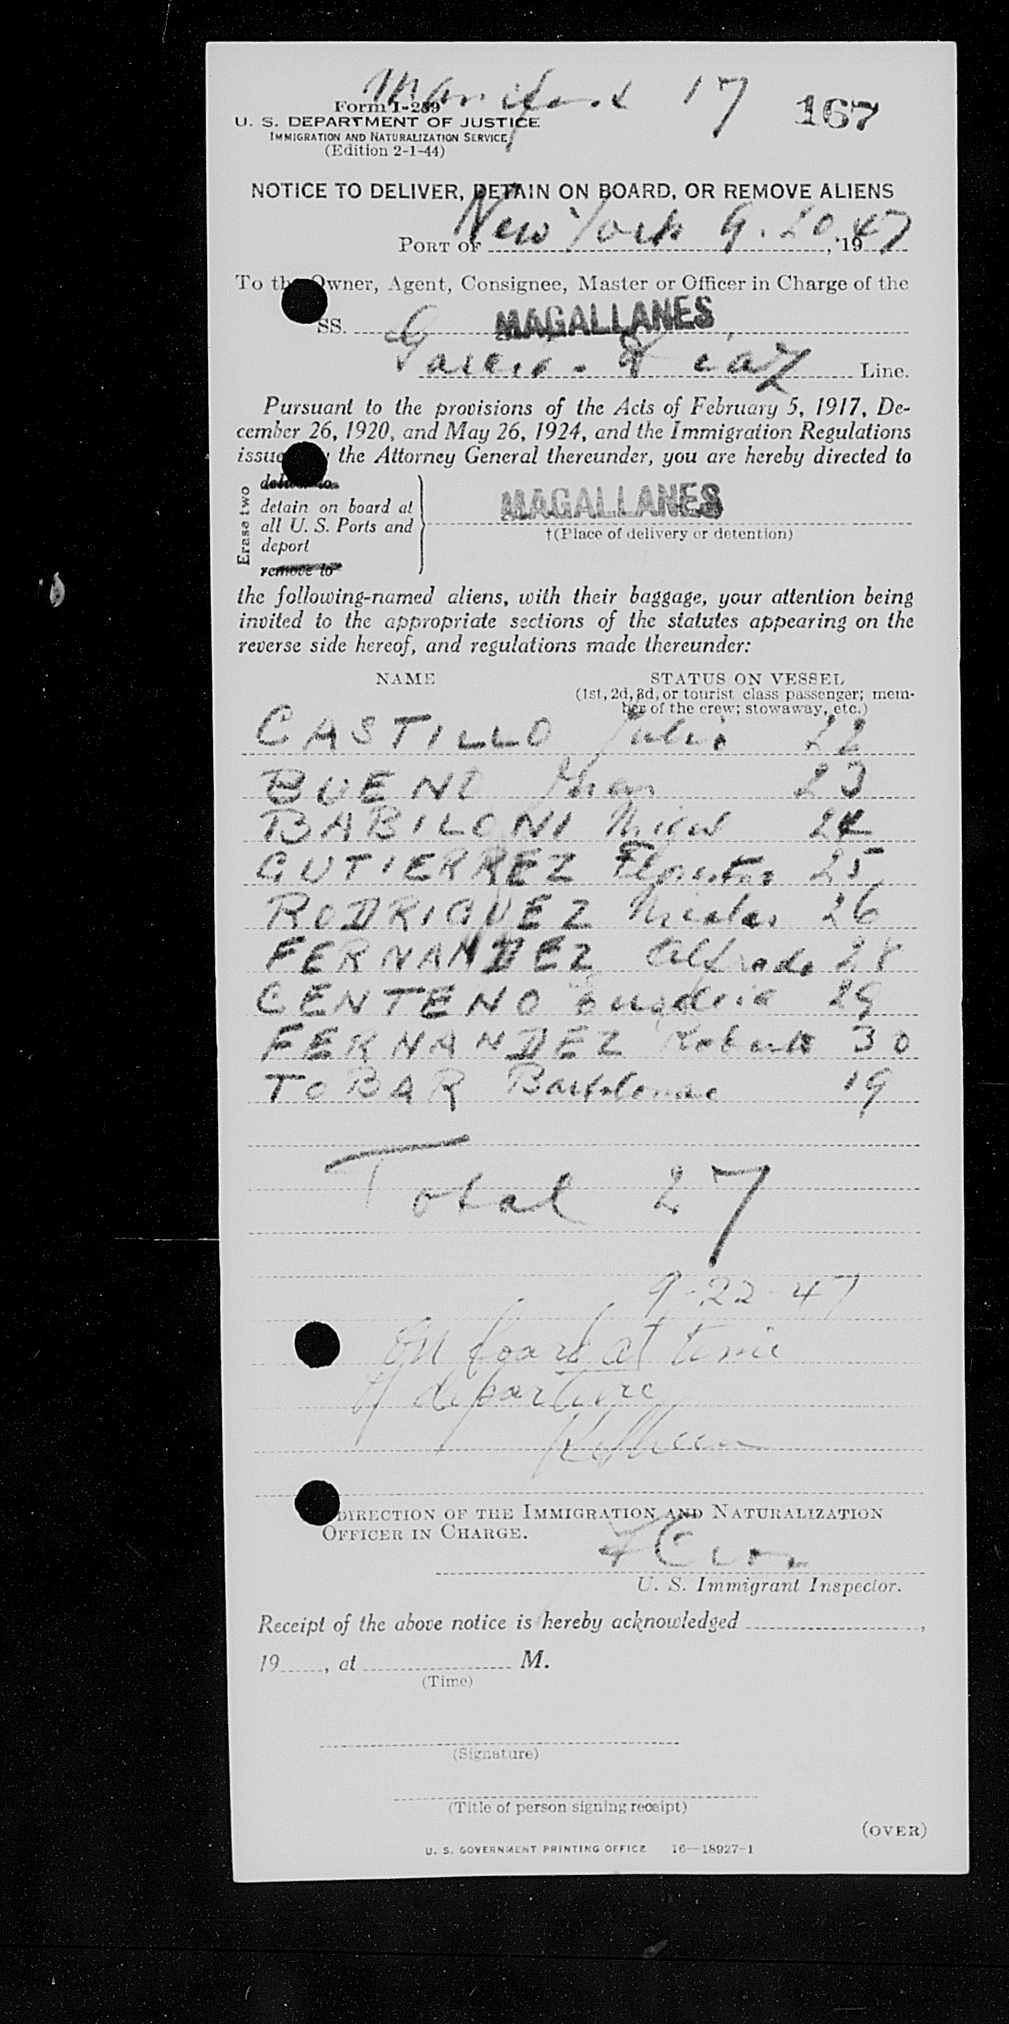 Manifest 17
167
Form I-259
U. S. DEPARTMENT OF JUSTICE
IMMIGRATION AND NATURALIZATION SERVICE
(Edition 2-1-44)
NOTICE TO DELIVER, DETAIN ON BOARD, OR REMOVE ALIENS
PORT OF New York 9.20, 1947
To the Owner, Agent, Consignee, Master or Officer in Charge of the
SS. MAGALLANES
Garcia & Diaz Line.
Pursuant to the provisions of the Acts of February 5, 1917, De-
cember 26, 1920, and May 26, 1924, and the Immigration Regulations
issued by the Attorney General thereunder, you are hereby directed to
Erase two
deliver to
detain on board at
all U. S. Ports and
deport
remove to
MAGALLANES
†(Place of delivery or detention)
the following-named aliens, with their baggage, your attention being
invited to the appropriate sections of the statutes appearing on the
reverse side hereof, and regulations made thereunder:
NAME STATUS ON VESSEL
(1st, 2d, 3d, or tourist class passenger; mem-
ber of the crew; stowaway, etc.)
CASTILLO Julio 22
BUENO 23
BABILONI 24
GUTIERREZ 25
RODRIGUEZ Nicolas 26
FERNANDEZ Alfredo 28
CENTENO 29
FERNANDEZ Roberto 30
TOBAR Bartolome 19
Total 27
9-22-47
On board at time
of departure
DIRECTION OF THE IMMIGRATION AND NATURALIZATION
OFFICER IN CHARGE.
U. S. Immigrant Inspector.
Receipt of the above notice is hereby acknowledged ,
19 , at M.
(Time)
(Signature)
(Title of person signing receipt)
(OVER)
U. S. GOVERNMENT PRINTING OFFICE 16—18927-1